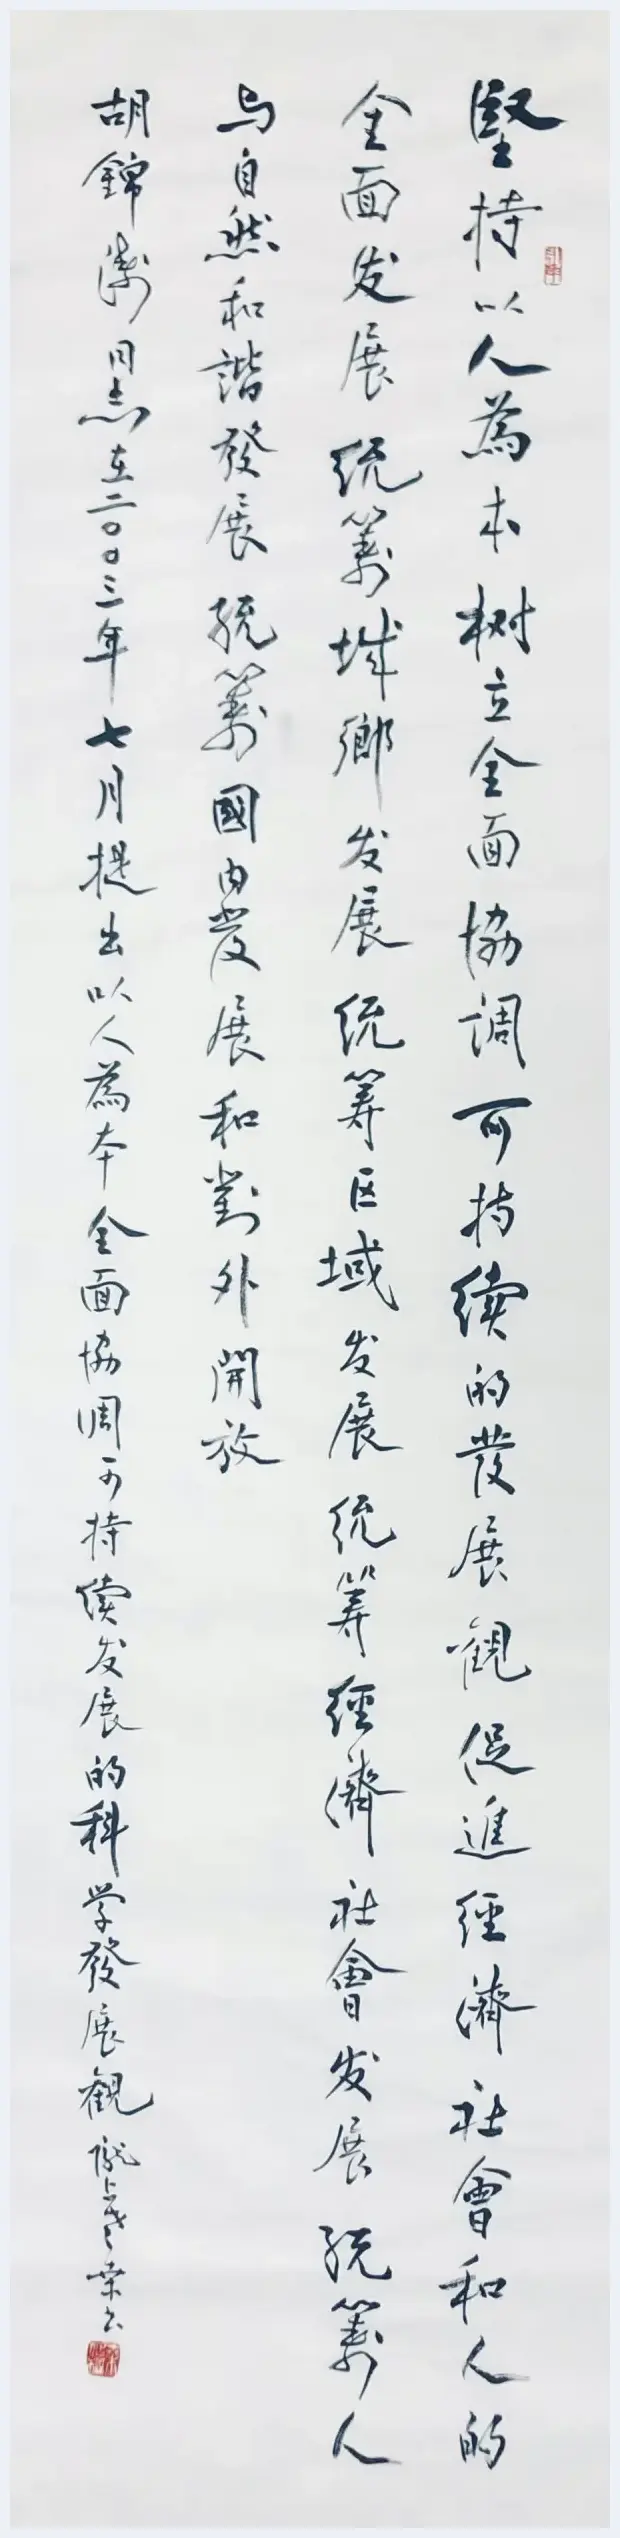 堅持以人為本树立全面協调可持续的發展觀促進經濟社會和人的
全面发展统籌城鄉发展统筹区域发展统筹經濟社會发展统籌人
与自然和諧發展统籌國内發展和對外開放
胡錦濤同志在二〇〇三年七月提出以人為本全面協调可持续发展的科学發展觀陇上老荣书